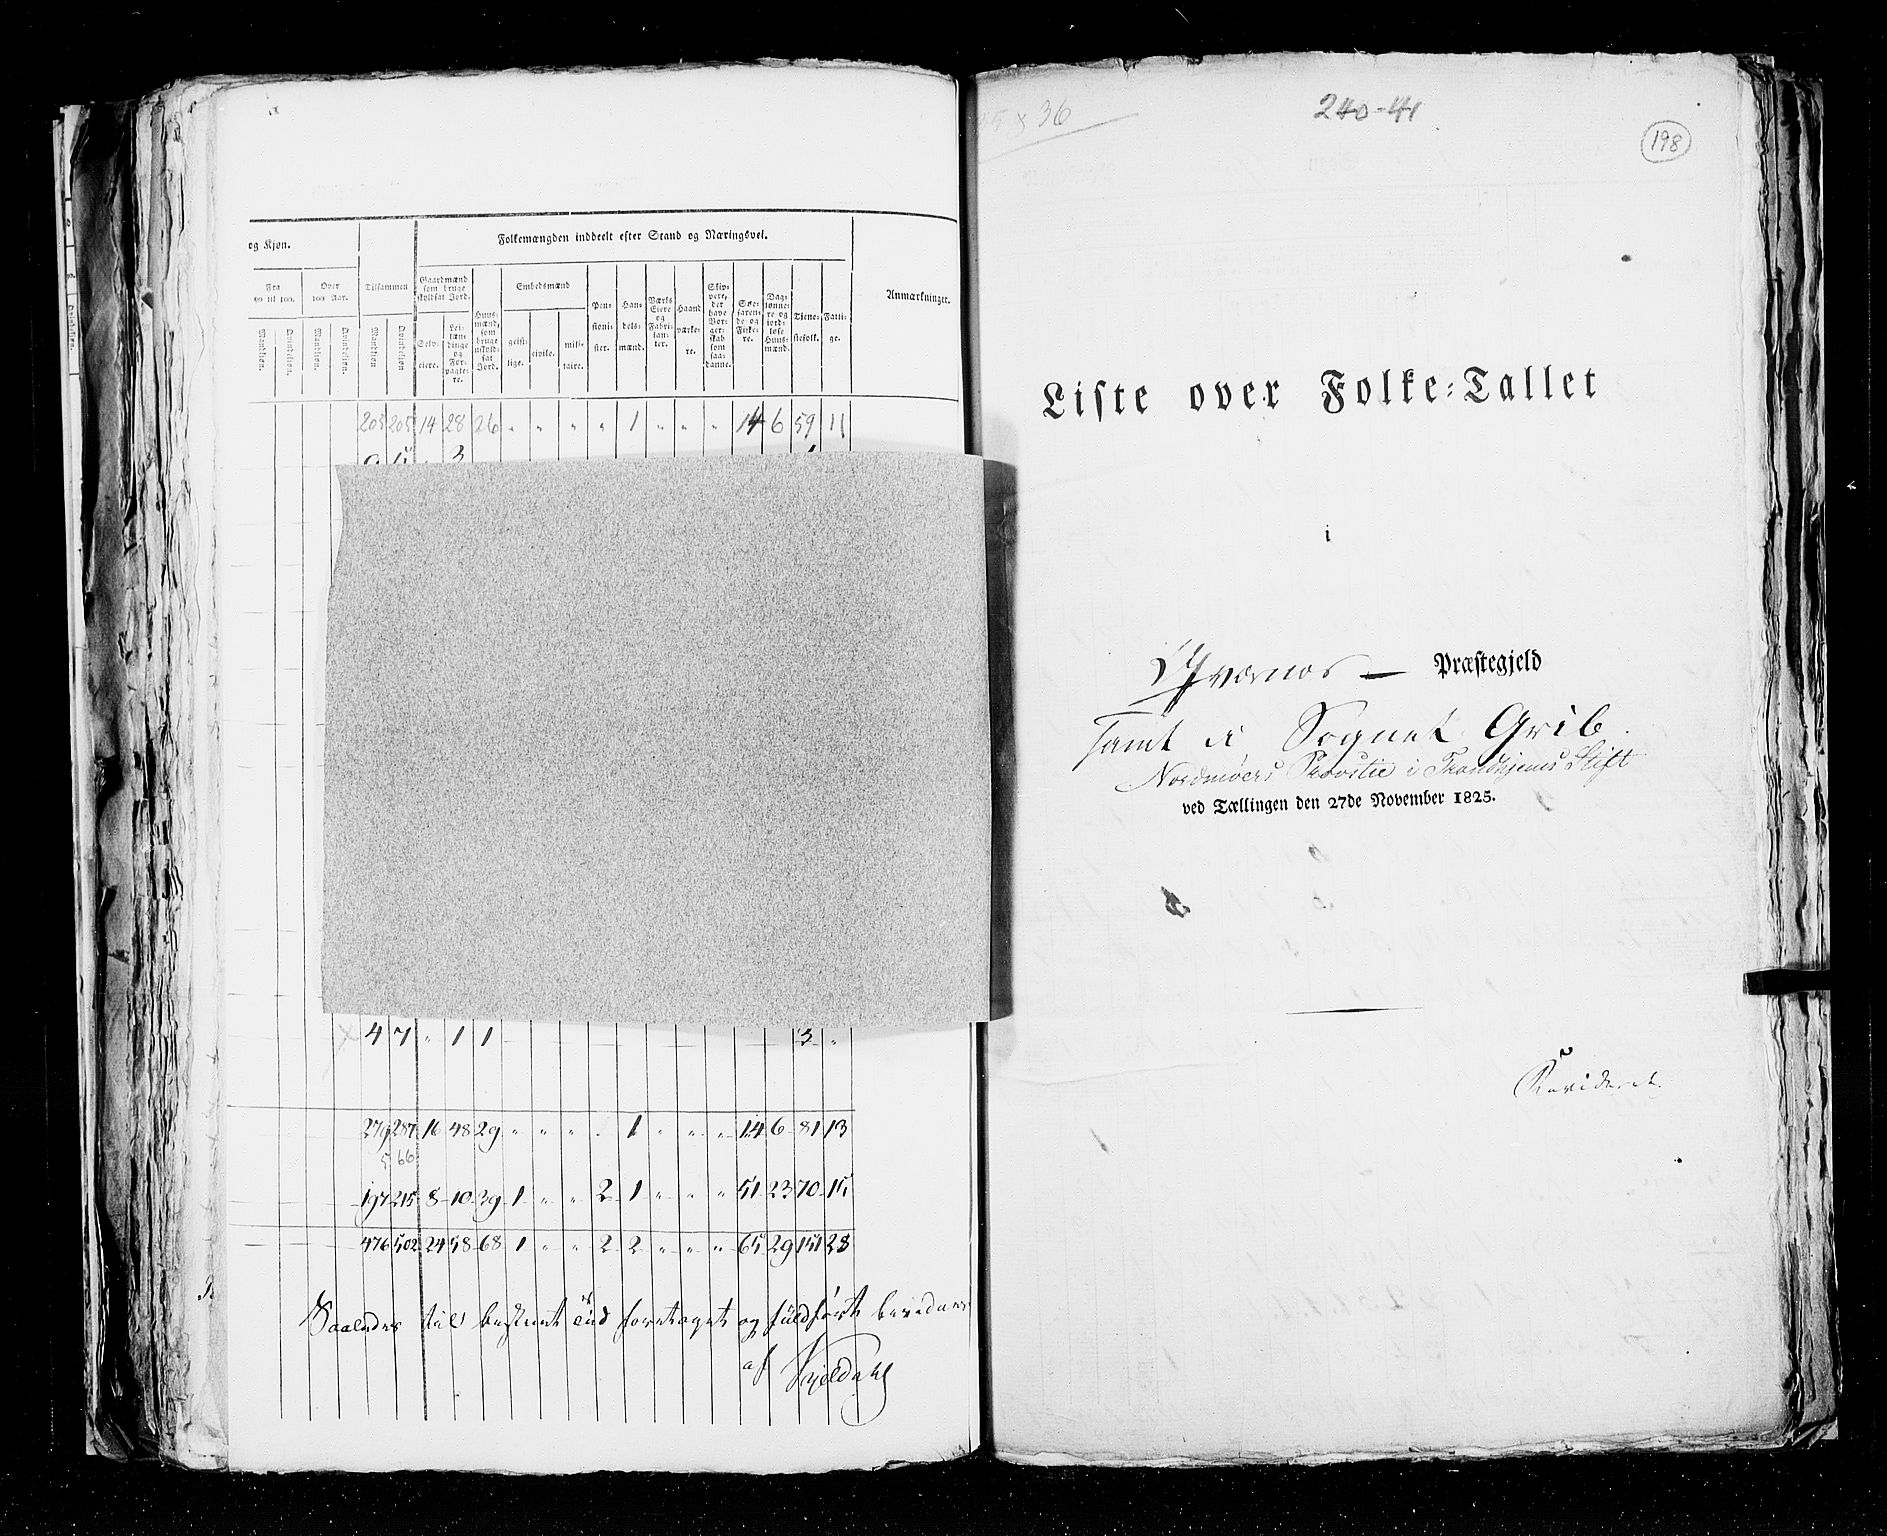 og Kjøn.
Folkemængden inddeelt efter Stand og Næringsvei.
Fra 90 til 100.
Over 100 Aar.
Tilsammen
Gaardmænd som bruge skyldsat Jord.
Huusmænd, som bruge uskyldsat Jord.
Embedsmænd
Pensionister.
Handelsmænd.
Værks Eiere og Fabrikanter.
Haandværkere.
Skippere, der have Borgerskab som saadanne.
Søefarende og Fiskere.
Daglønnere og jordløse Huusmænd.
Tjenestefolk.
Fattige.
Anmærkninger.
Mandkiøn. Qvindekiøn. Mandkiøn. Qvindekiøn. Mandkiøn Qvindekiøn Selveiere. Leilændinge og Forpagtere. geistlige. civile. militaire.
205 205 14 28 26 „ „ „ „ 1 „ „ „ 14 6 59 11
3
4 7 „ 1 1 3 „
279 287 16 48 29 „ „ „ „ 1 „ „ „ 14 6 81 13
566
197 215 8 10 39 1 „ „ 2 1 „ „ „ 51 23 70 15
476 502 24 58 68 1 „ „ 2 2 „ „ „ 65 29 151 28
Saaledes foretaget og
af
36
240-41
198
Liste over Folke-Tallet
i
Qværnæs — Præstegjeld
samt i Sognet Grib.
Nordmøers Provstie i Trondhjems Stift
ved Tællingen den 27de November 1825.
Revideret.